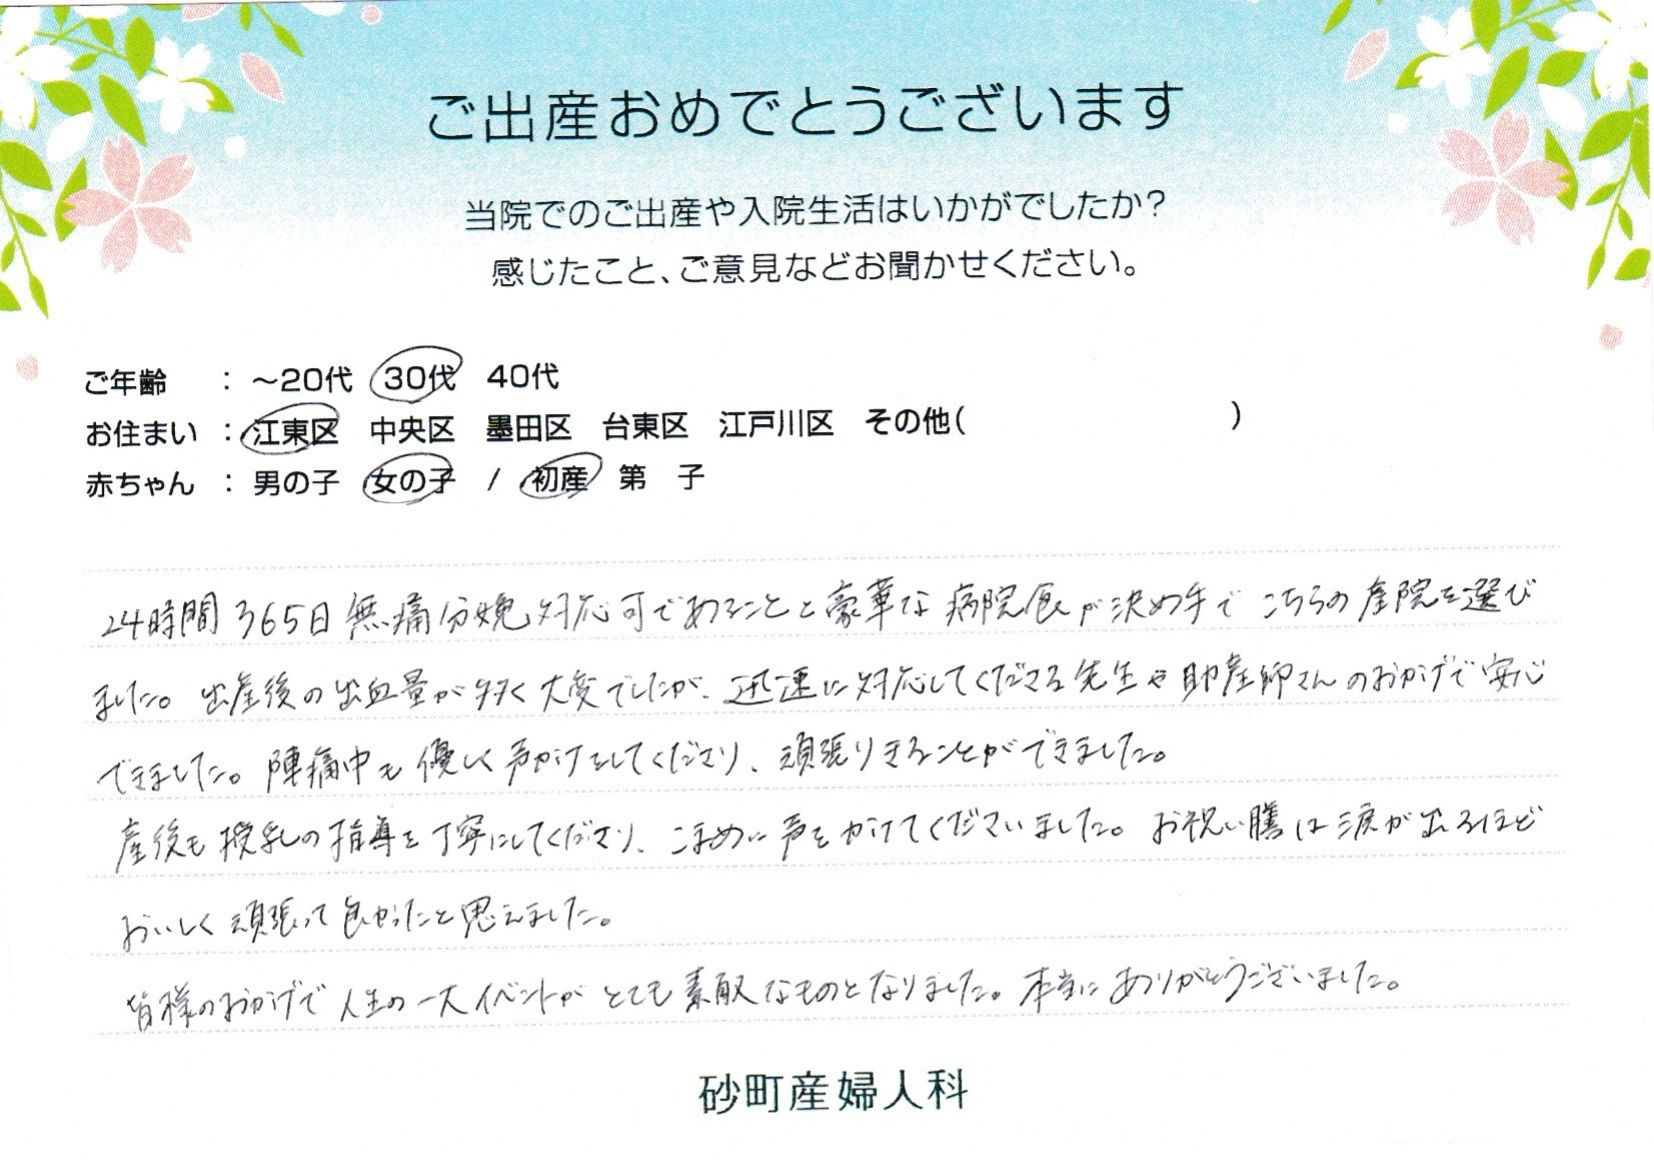 ご出産おめでとうございます
当院でのご出産や入院生活はいかがでしたか？
感じたこと、ご意見などお聞かせください。
ご年齢 ： ～20代 30代 40代
お住まい ： 江東区 中央区 墨田区 台東区 江戸川区 その他( )
赤ちゃん ： 男の子 女の子 / 初産 第 子
24時間365日無痛分娩対応可であることと豪華な病院食が決め手でこちらの産院を選び
ました。出産後の出血量が多く大変でしたが、迅速に対応してくださる先生や助産師さんのおかげで安心
できました。陣痛中も優しく声かけをしてくださり、頑張りきることができました。
産後も授乳の指導を丁寧にしてくださり、こまめに声をかけてくださいました。お祝い膳は涙が出るほど
おいしく頑張って良かったと思えました。
皆様のおかげで人生の一大イベントがとても素敵なものとなりました。本当にありがとうございました。
砂町産婦人科